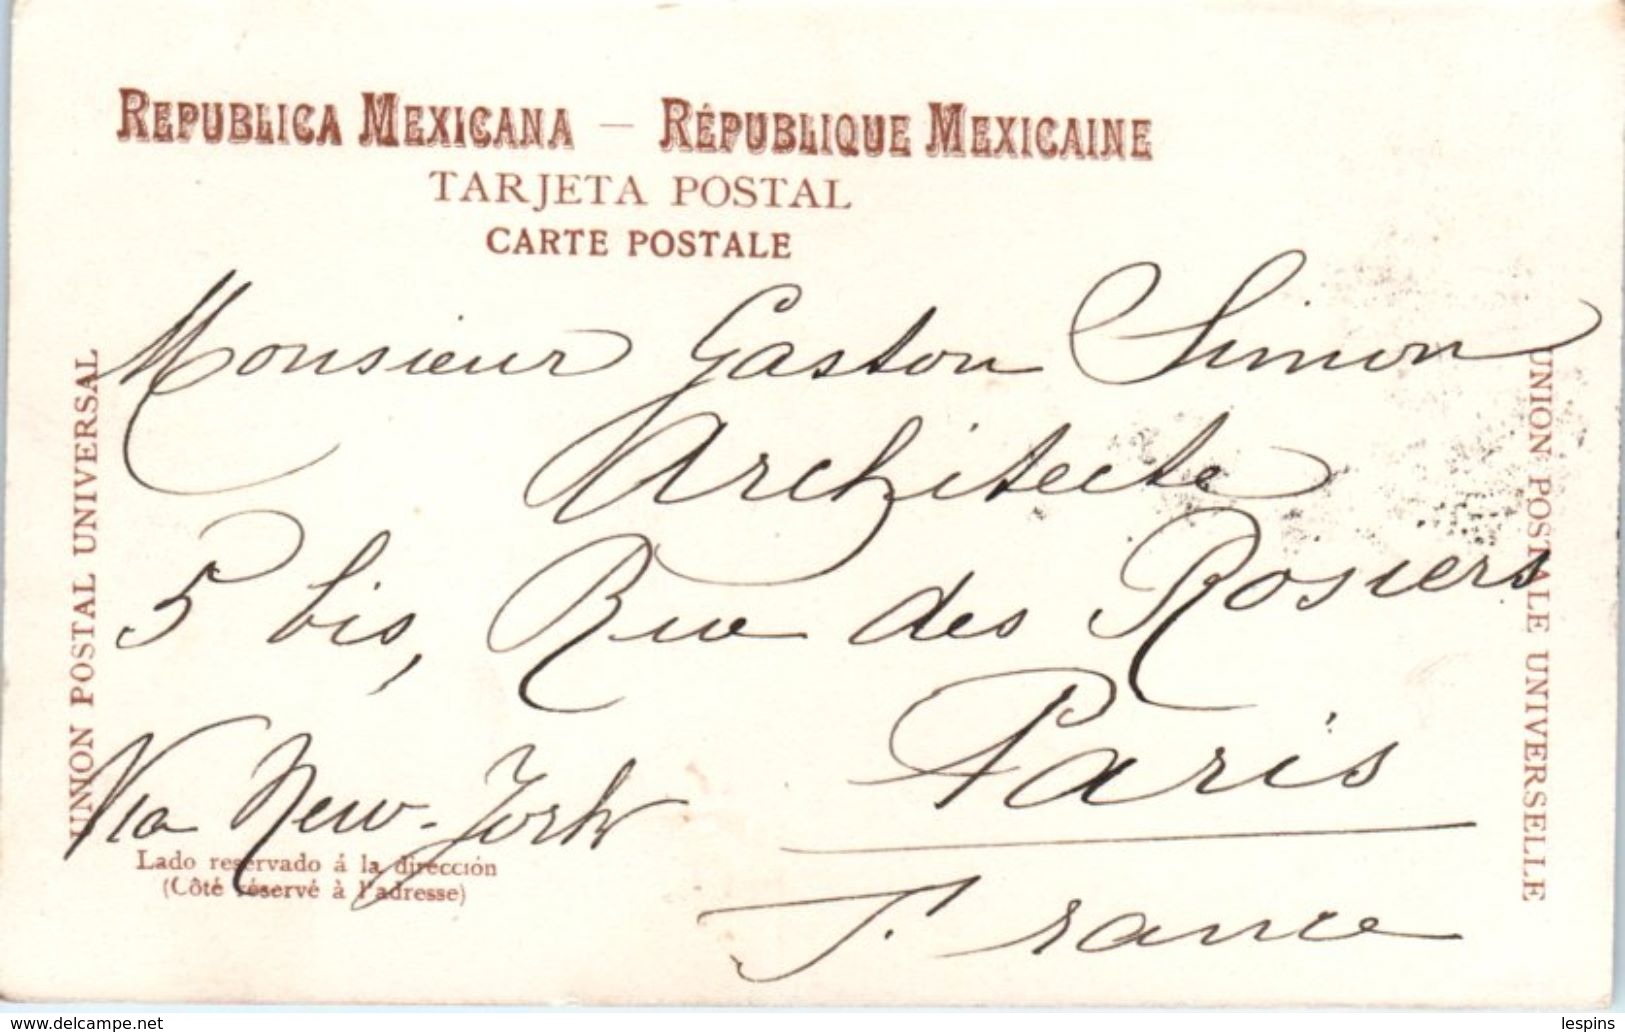 REPUBLICA MEXICANA — RÉPUBLIQUE MEXICAINE
TARJETA POSTAL
CARTE POSTALE
UNION POSTAL UNIVERSAL
UNION POSTALE UNIVERSELLE
Monsieur Gaston Simon
Architecte
5 bis, Rue des Rosiers
Paris
Via New-York
France
Lado reservado á la dirección
(Côté réservé à l'adresse)
www.delcampe.net
lespins